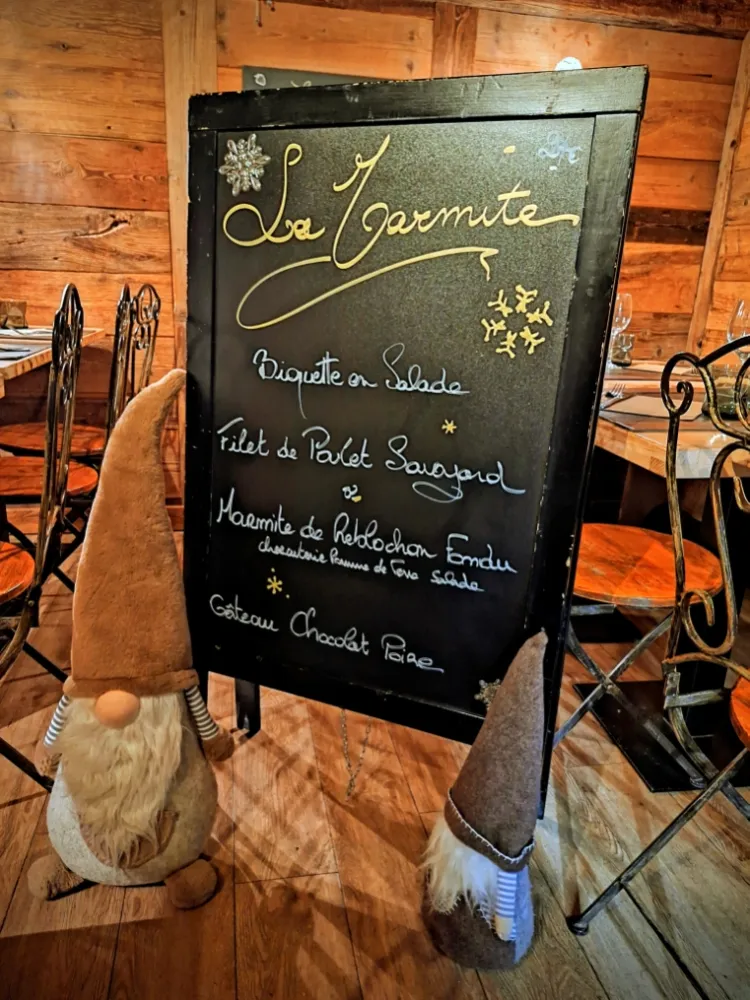 La Marmite
Biquette en Salade
Filet de Poulet Savoyard
ou
Marmite de Reblochon Fondu
charcuterie Pomme de Terre Salade
Gâteau Chocolat Poire